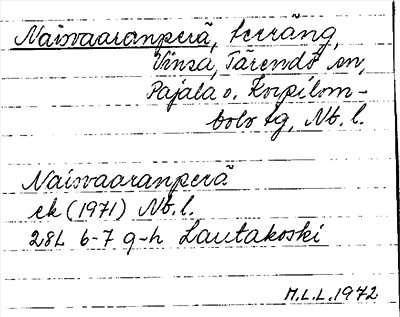 Naisvaaranperä, terräng,
Vinsa, Tärendö sn,
Pajala o. Korpilom-
bolo tg, Nb. l.
Naisvaaranperä
ek (1971) Nb. l.
28L 6-7 g-h Lautakoski
M.L.L. 1972